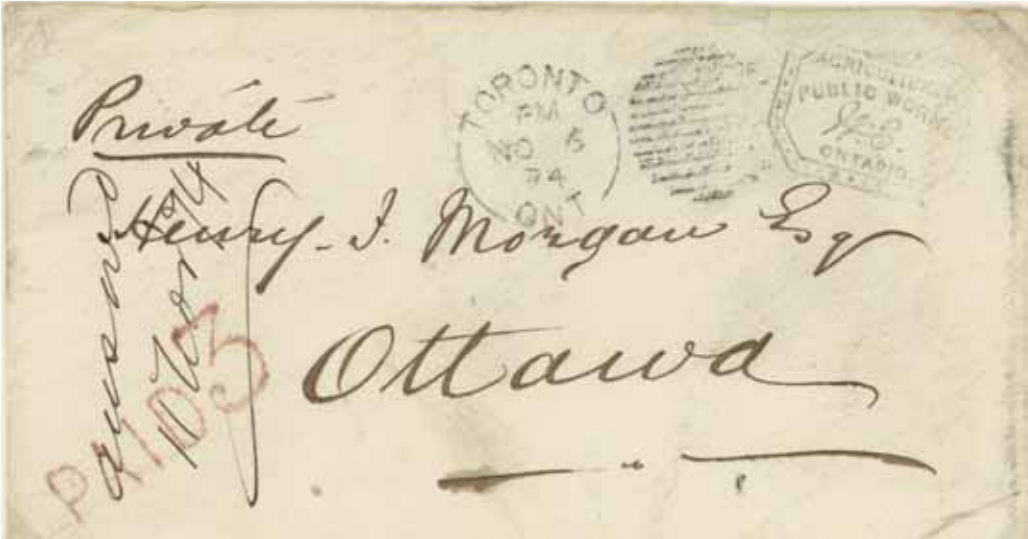 Private
TORONTO
PM
NO 6
74
ONT
AGRICULTURE
PUBLIC WORKS
ONTARIO
Henry. J. Morgan Esq
Ottawa
PAID 3